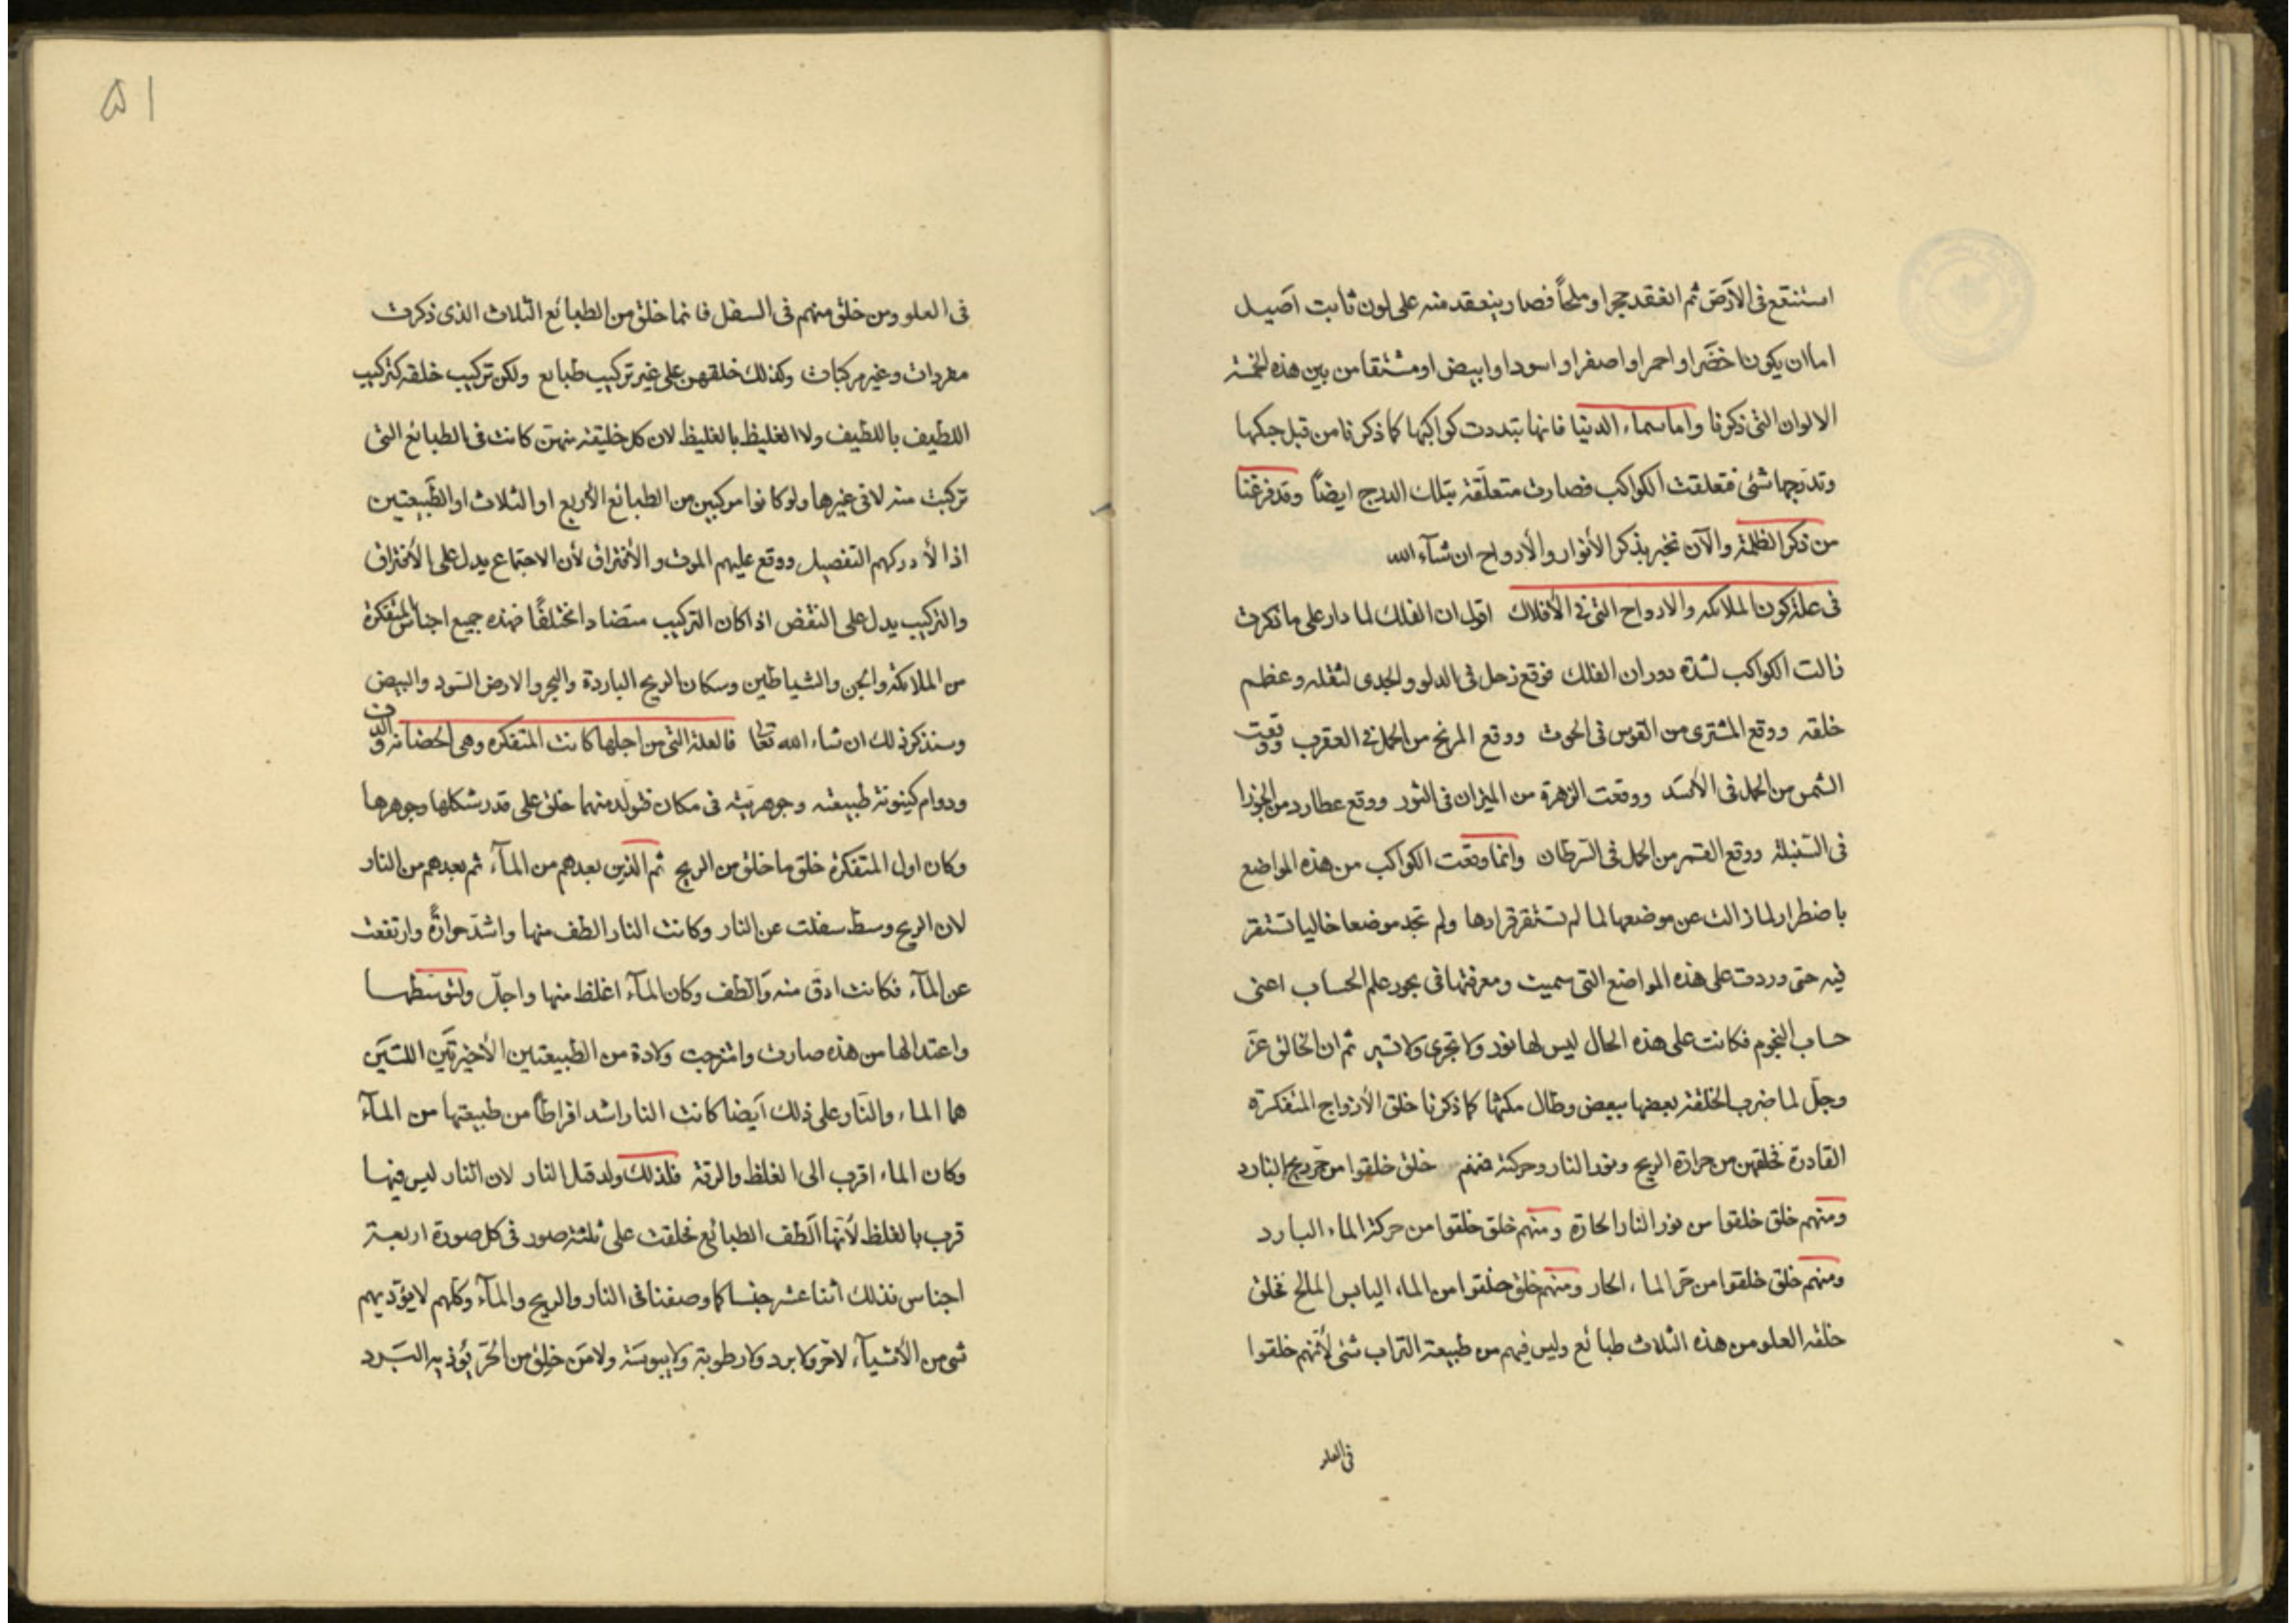 استنقع فى الأرض ثم انعقد حجرا وملحاً فصار ينعقد منه على لون ثابت اصيل
اما ان يكون اخضر او احمر او اصفر او اسود او ابيض او مشتقا من بين هذه الخمسة
الالوان التى ذكرنا واما سماء الدنيا فانها تبددت كواكبها كما ذكرنا من قبل حبكها
وتدبجها شئى فتعلقت الكواكب فصارت متعلقة بتلك الدرج ايضاً وقد فرغنا
من ذكر الظلمة والآن نخبر بذكر الأنوار والأرواح ان شآء الله
فى علة كون الملائكه والارواح التى فى الأفلاك اقول ان الفلك لما دار على ما ذكرت
زالت الكواكب لشدة دوران الفلك فوقع زحل فى الدلو والجدى لثقله وعظم
خلقه ووقع المشترى من القوس فى الحوت ووقع المريخ من الحمل فى العقرب ووقعت
الشمس من الحمل فى الأسد ووقعت الزهرة من الميزان فى الثور ووقع عطارد من الجوزا
فى السنبلة ووقع القمر من الحمل فى السرطان وانما وقعت الكواكب من هذه المواضع
باضطرار لما زالت عن موضعها لما لم تستقر قرارها ولم تجد موضعا خاليا تستقر
فيه حتى وردت على هذه المواضع التى سميت ومعرفتها فى بحور علم الحساب اعنى
حساب النجوم فكانت على هذه الحال ليس لها نور ولا تجرى ولا تسير ثم ان الخالق عز
وجل لما ضرب الخلقة بعضها ببعض وطال مكثها كما ذكرنا خلق الأزواج المتفكرة
القادرة فخلقهن من حرارة الريح ونور النار وحركة فمنهم خلق خلقوا من حر ريح البارد
ومنهم خلق خلقوا من نور النار الحارة ومنهم خلق خلقوا من حركة الماء البارد
ومنهم خلق خلقوا من حر الماء الحار ومنهم خلق خلقوا من الماء اليابس المالح فخلق
خلقه العلو من هذه الثلاث طبائع وليس فيهم من طبيعة التراب شئى لأنهم خلقوا
فى العلو
۵۱
فى العلو ومن خلق منهم فى السفل فانما خلق من الطبائع الثلاث الذى ذكرت
مفردات وغير مركبات وكذلك خلقهن على غير تركيب طبايع ولكن تركيب خلقه كتركيب
اللطيف باللطيف ولا الغليظ بالغليظ لان كل خليقة منهن كانت فى الطبائع التى
تركبت منه لا فى غيرها ولو كانوا مركبين من الطبائع الأربع او الثلاث او الطبيعتين
اذا لأدركهم التفصيل ووقع عليهم الموت والأفتراق لأن الاجتماع يدل على الأفتراق
والتركيب يدل على النقض اذا كان التركيب متضادا مختلفاً فهذه جميع اجناس المتفكرة
من الملائكة والجن والشياطين وسكان الريح الباردة والبحر والارض السود والبيض
وسنذكر ذلك ان شاء الله تعا فالعلة التى من اجلها كانت المتفكره وهى الحضانة
ودوام كينونة طبيعته وجوهريته فى مكان فتولد منهما خلق على قدر شكلها وجوهرها
وكان اول المتفكرة خلق ما خلق من الريح ثم الذين بعدهم من المآء ثم بعدهم من النار
لان الريح وسط سفلت عن النار وكانت النار الطف منها واشد حرارةً وارتفعت
عن المآء فكانت ادق منه وألطف وكان المآء اغلظ منها واجل ولتوسطها
واعتدالها من هذه صارت وامتزجت ولادة من الطبيعتين الأخيرتين اللتين
هما الماء والنار وعلى ذلك أيضا كانت النار اشد افراطاً من طبيعتها من المآء
وكان الماء اقرب الى الغلظ والرقة فلذلك ولد قبل النار لان النار ليس فيها
قرب بالغلظ لأنها ألطف الطبائع فخلقت على ثلثة صور فى كل صورة اربعة
اجناس فذلك اثنا عشر جنسا كما وصفنا فى النار والريح والمآء وكلهم لا يؤديهم
شى من الأشيآء لا حر ولا برد ولا رطوبة ولا يبوسة ولا من خلق من الحر يؤذيه البرد